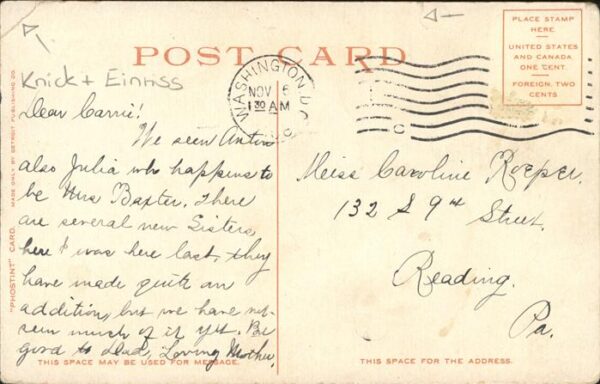 POST CARD
PLACE STAMP
HERE
UNITED STATES
AND CANADA
ONE CENT.
FOREIGN, TWO
CENTS
WASHINGTON, D.C.
NOV 6
1 30 AM
Knick + Einriss
Dear Carrie!
We seen Anton
also Julia who happens to
be Mrs Baxter. There
are several new Sisters
here I was here last, they
have made quite an
addition, but we have not
seen much of it yet. Be
good to Dad, Loving Mother.
Miss Caroline Roeper.
132 S 9th Street.
Reading.
Pa.
"PHOSTINT" CARD. MADE ONLY BY DETROIT PUBLISHING CO.
THIS SPACE MAY BE USED FOR MESSAGE.
THIS SPACE FOR THE ADDRESS.